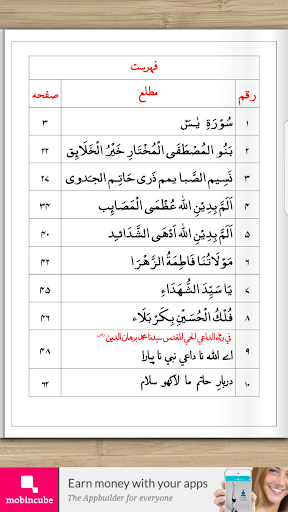 فهرست
رقم مطلع صفحه
١ سُوْرَةِ يٰسٓ ٣
٢ بَنُو المُصْطَفَى الْمُخْتَارِ خَيْرُ الْخَلَايِقِ ٢٢
٣ نَسِيم الصَّبا يمم ذَرى حَاتِمِ الجَدوى ٢٧
٤ اَلَمَّ بِدِيْنِ اللهِ عُظْمَى الْمَصَايِب ٣۴
۵ اَلَمَّ بِدِيْنِ اللهِ اَدْهَى الشَّدَائِد ۴٠
٦ مَوْلَاتُنَا فَاطِمَةُ الزَّهْرَا ۴٢
٧ يَا سَيِّدَ الشُّهَدَاءِ ۴۵
٨ فُلْكُ الْحُسَيْنِ بِكَرْبَلَاء ۴٦
في رثاء الداعي الحي المقدس سيدنا محمد برهان الدين
٩ اے الله نا داعي نبي نا پيارا ۴٨
١٠ دربارِ حاتم ما لاكهو سلام ٦٢
mobincube
Earn money with your apps
The Appbuilder for everyone